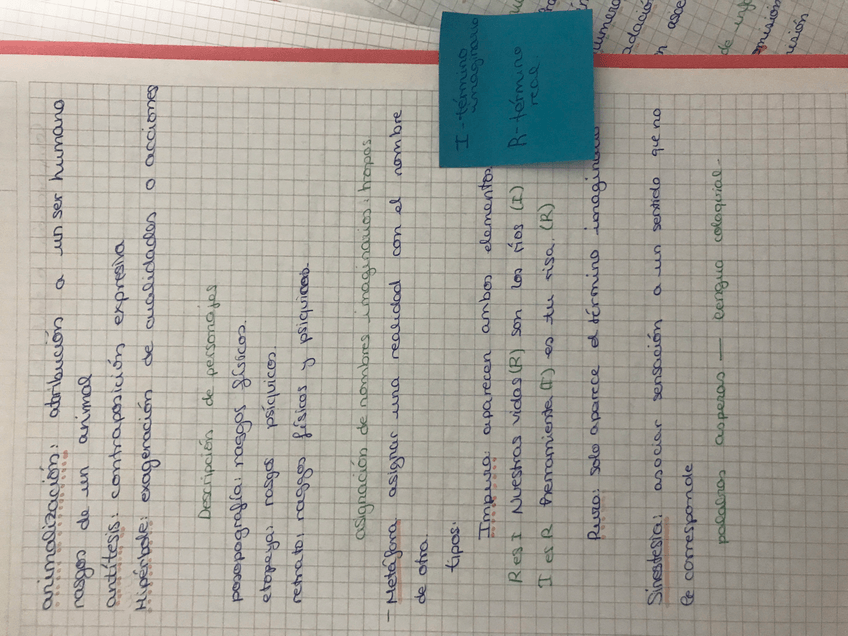 animalización: atribución a un ser humano
rasgos de un animal
antítesis: contraposición expresiva
Hipérbole: exageración de cualidades o acciones
Descripción de personajes
posopografía: rasgos físicos.
etopeya: rasgos psíquicos.
retrato: rasgos físicos y psíquicos.
asignación de nombres imaginarios: tropos
- Metáfora asignar una realidad con el nombre
de otra.
tipos:
Impura: aparecen ambos elementos
R es I Nuestras vidas (R) son los ríos (I)
I es R herramienta (I) es tu risa. (R)
Pura: solo aparece el término imaginario
Sinestesia: asociar sensación a un sentido que no
le corresponde
palabras asperas — lengua coloquial.
I - término
imaginario
R - término
real